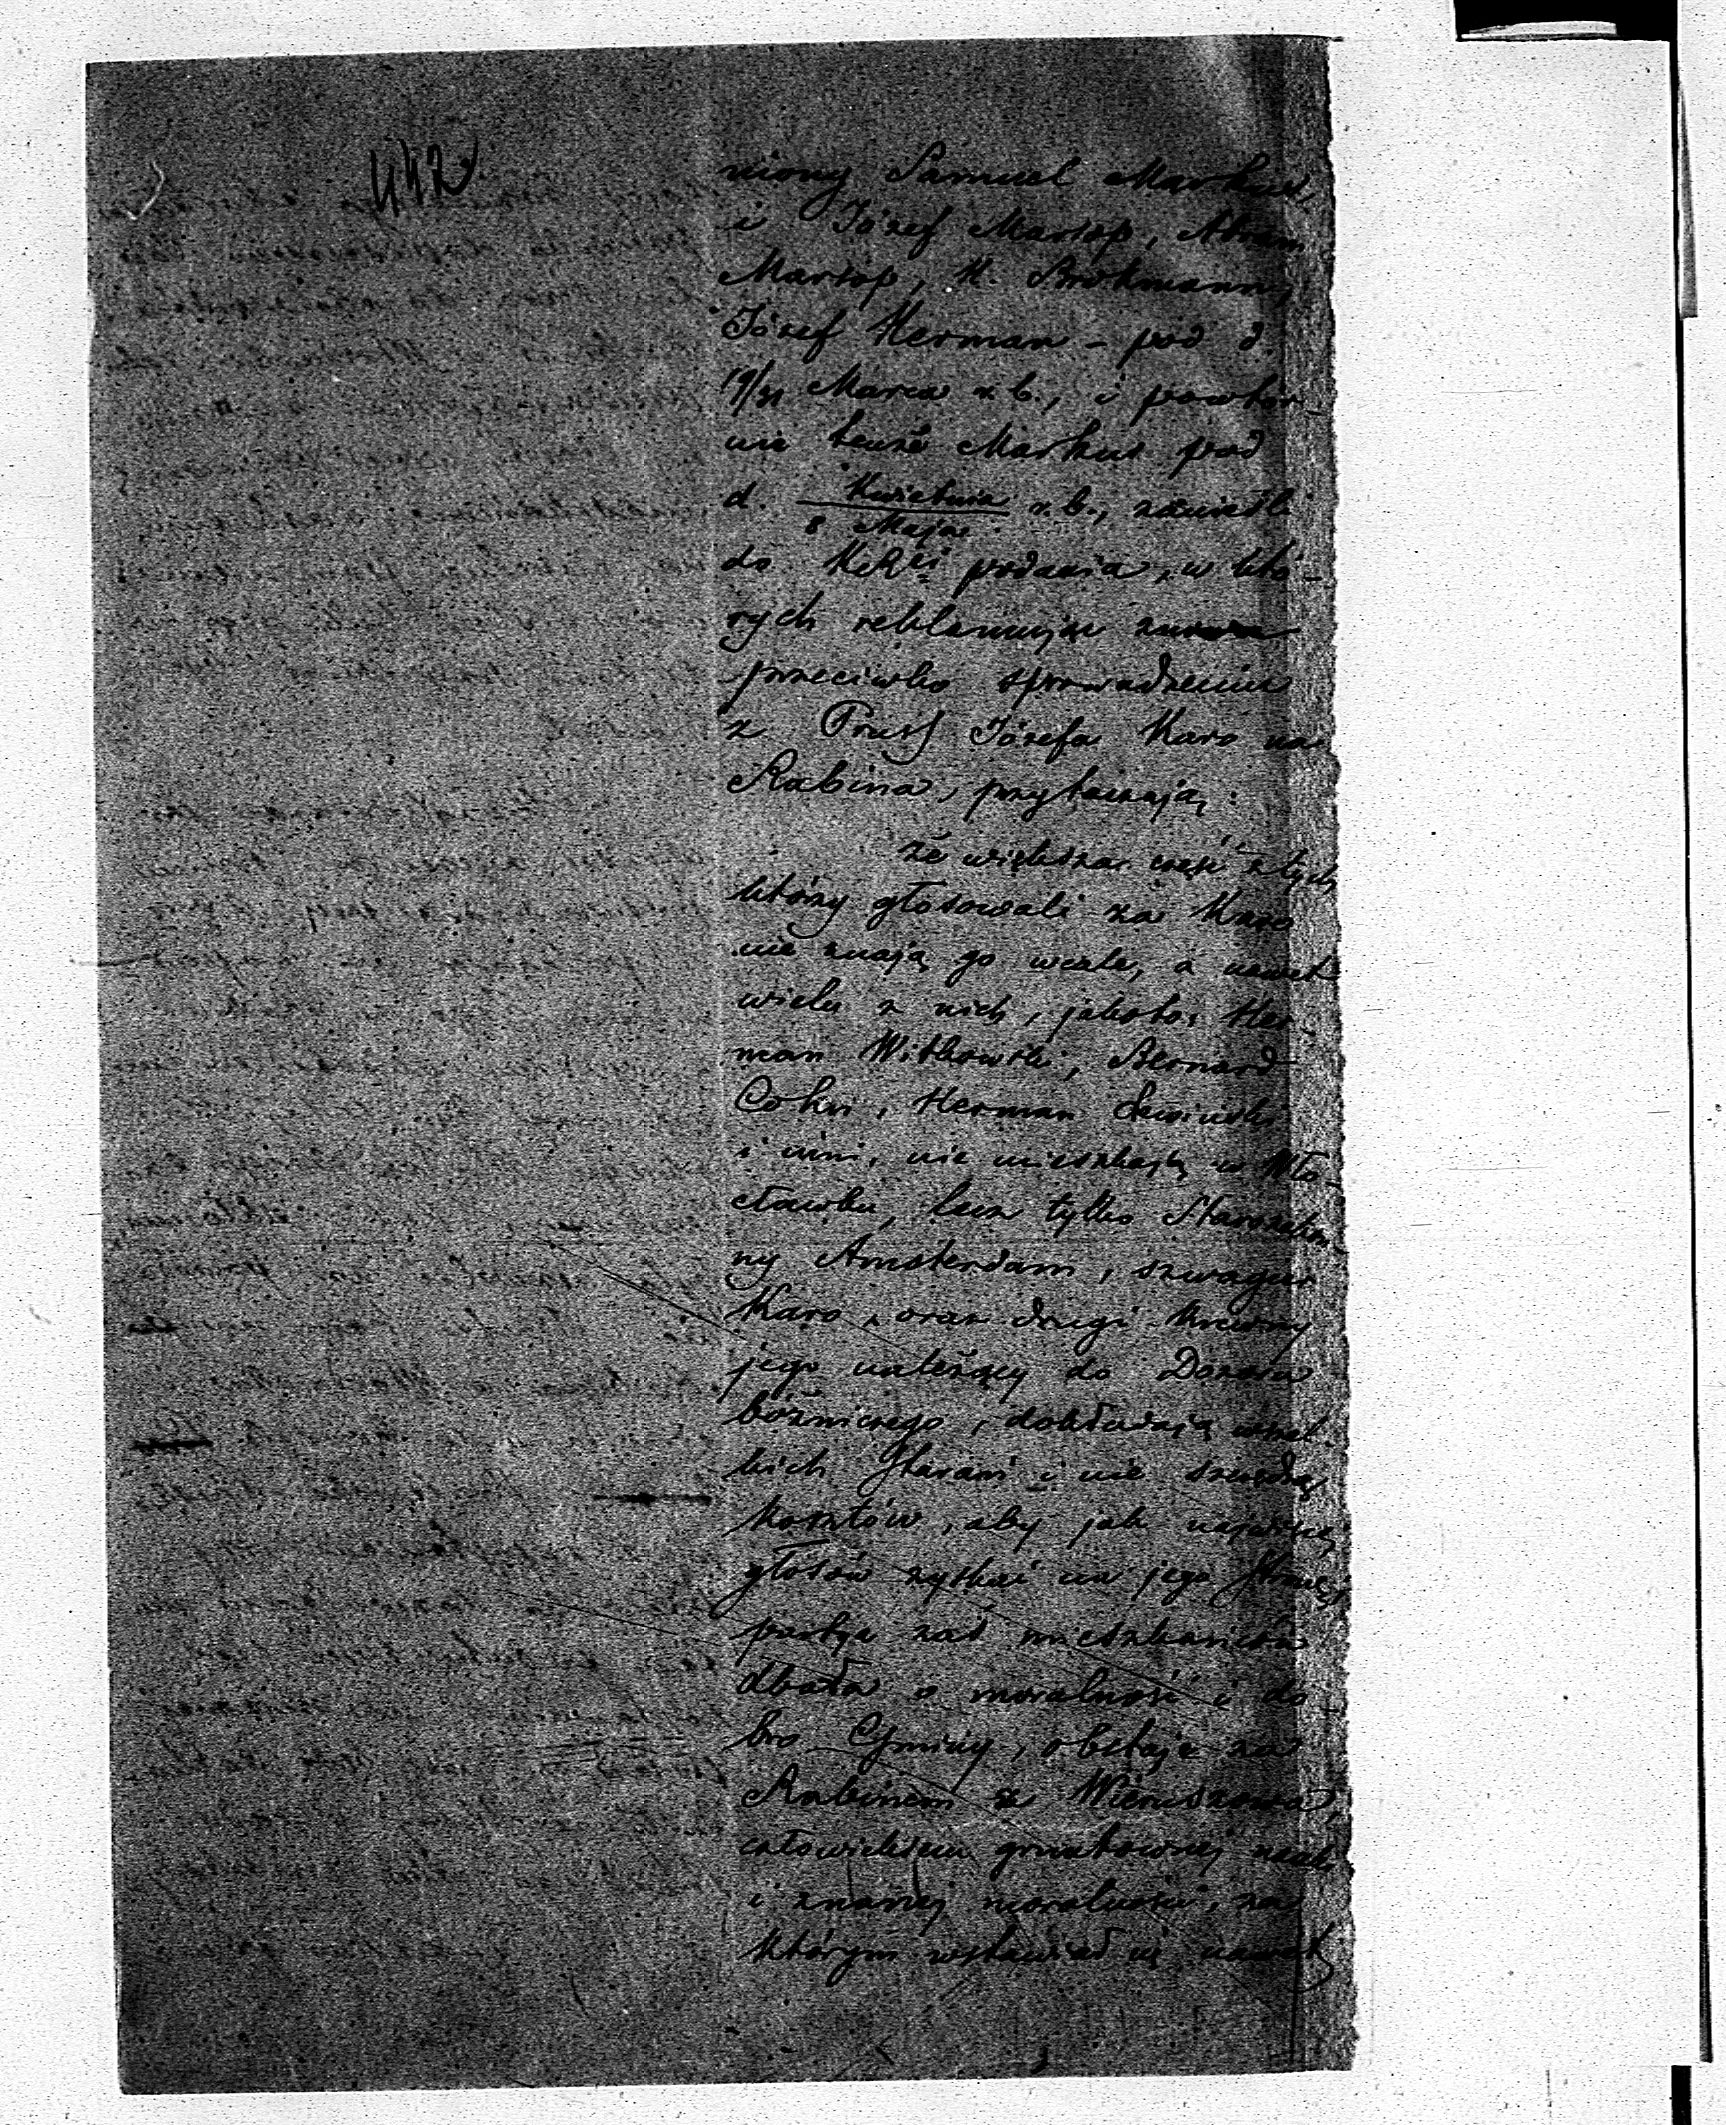 442
niony Samuel Markus,
i Józef Marsop, Abram
Marsop, H. Brokmann,
Józef Herman – pod d.
19/31 Marca r.b., i powtór-
nie tenże Markus pod
d. Kwietnia r.b., zanieśli
8 Maja
do podania, w któ-
rych reklamują
przeciwko sprowadzeniu
z Prus Józefa Karo na
Rabina, przytaczają:
że większa część z tych
którzy głosowali za Karo
nie znają go wcale, a nawet
wielu z nich, jakoto: Her-
man Witkowski, Bernard
Cohn, Herman Lewiński
i inni, nie mieszkają w Wło-
cławku, lecz tylko Starozakon-
ny Amsterdam, szwagier
Karo, oraz drugi Krewny
jego należący do Dozoru
bóżniczego, dokładają wszel-
kich starań i nie szczędzą
kosztów, aby jak najwięcej
głosów zyskać na jego stronę,
partja zaś mieszkańców
dbała o moralność i do
bro Gminy, obstaje za
Rabinem z Wieruszowa,
człowiekiem gruntownej nauki
i znanej moralności, za
którym wstawiał się nawet